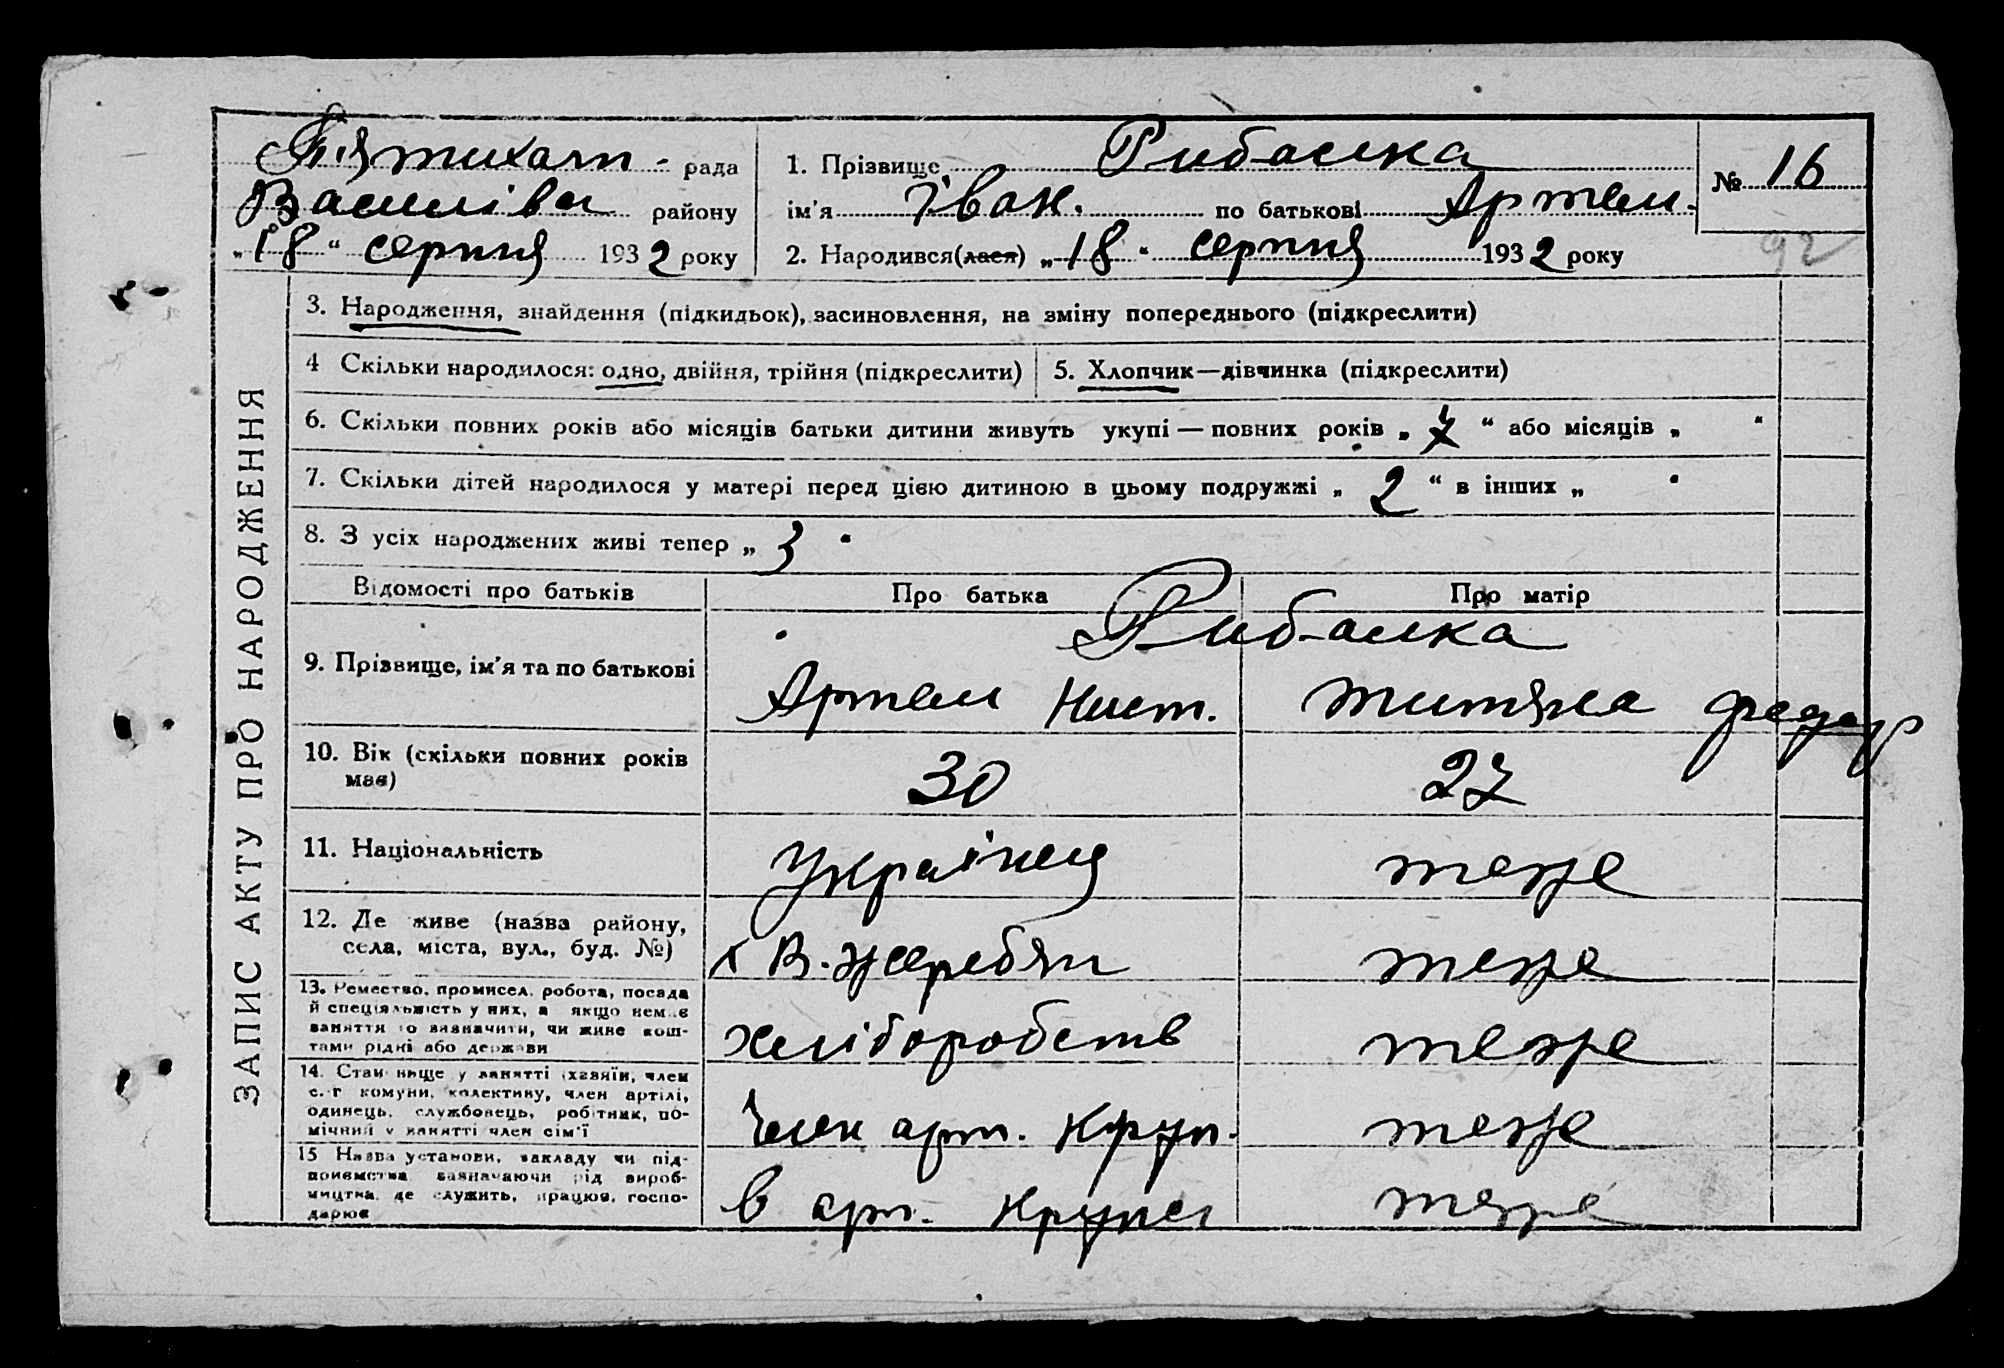 П'ятихатп - рада
Василівсь району
„18“ серпня 1932 року
1. Прізвище Рибалка
ім'я Іван. по батькові Артем.
2. Народився(лася) „18“ серпня 1932 року
№ 16
92
ЗАПИС АКТУ ПРО НАРОДЖЕННЯ
3. Народження, знайдення (підкидьок), засиновлення, на зміну попереднього (підкреслити)
4 Скільки народилося: одно, двійня, трійня (підкреслити)
5. Хлопчик—дівчинка (підкреслити)
6. Скільки повних років або місяців батьки дитини живуть укупі — повних років „7“ або місяців „ “
7. Скільки дітей народилося у матері перед цією дитиною в цьому подружжі „2“ в інших „ “
8. З усіх народжених живі тепер „3“
Відомості про батьків
Про батька
Про матір
9. Прізвище, ім'я та по батькові
Рибалка
Артем
Федор
10. Вік (скільки повних років
має)
30
27
11. Національність
Українец
теже
12. Де живе (назва району,
села, міста, вул., буд. №)
х В. Жеребян
теже
13. Ремество, промисел, робота, посада
й спеціяльність у них, а якщо немає
заняття то зазначити, чи живе кош-
тами рідні або держави
хліборобств
теже
14. Стан вище у занятті (хазяїн, член
с.-г комуни, колективу, член артілі,
одинець, службовець, робітник, по-
мічний у занятті член сім'ї
Член арт. Круп.
теже
15 Назва установи, закладу чи під-
приємства зазначаючи рід вироб-
ництва, де служить, працює, госпо-
дарює
в арт. Крупсі
теже